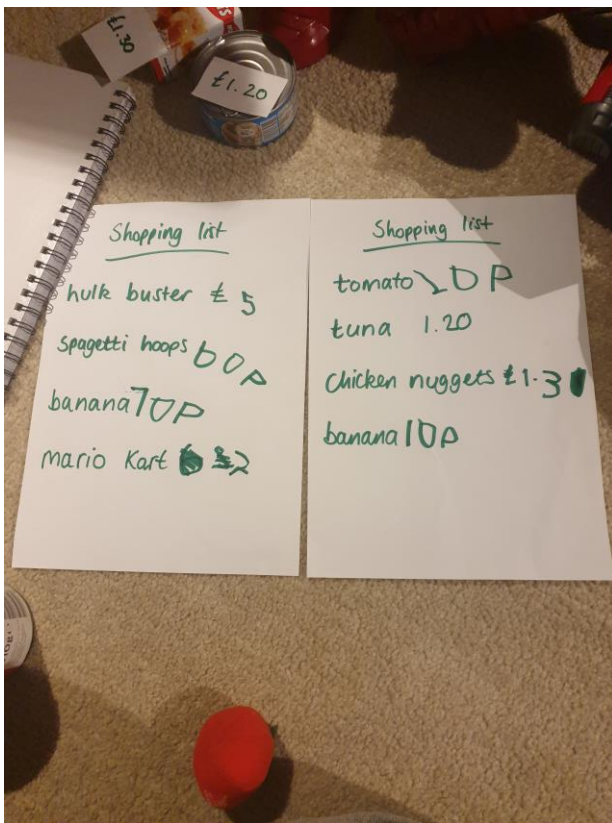 £1.30
£1.20
Shopping list
hulk buster £5
Spagetti hoops 60p
banana 10p
mario Kart £2
Shopping list
tomato 10p
tuna 1.20
chicken nuggets £1.30
banana 10p